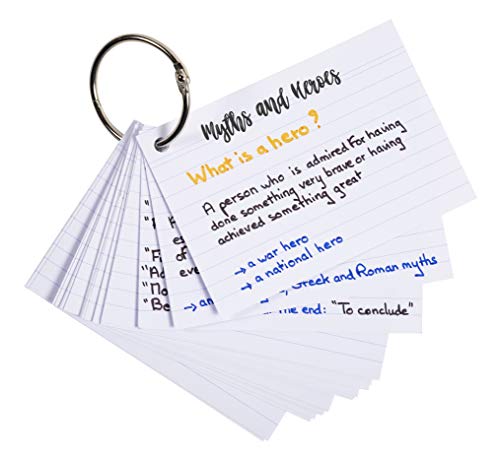 Myths and Heroes
What is a hero?
A person who is admired for having
done something very brave or having
achieved something great
→ a war hero
→ a national hero
Greek and Roman myths
the end: "To conclude"